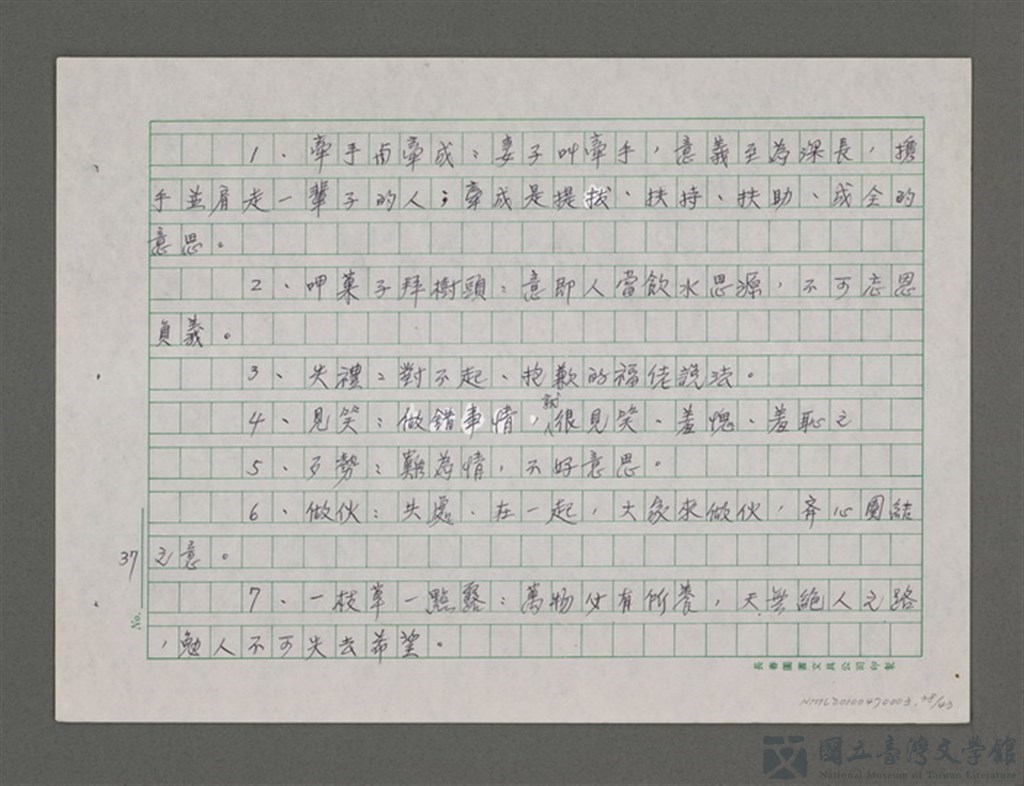 1、牽手南牽成：妻子叫牽手，意義至為深長，攜
手並肩走一輩子的人；牽成是提拔、扶持、扶助、成全的
意思。
2、呷菓子拜樹頭：意即人當飲水思源，不可忘恩
負義。
3、失禮：對不起、抱歉的福佬說法。
4、見笑：做錯事情，就很見笑、羞愧、羞恥之
5、歹勢：難為情，不好意思。
6、做伙：共處、在一起，大家來做伙，齊心團結
之意。
7、一枝草一點露：萬物必有所養，天無絕人之路
，勉人不可失去希望。
37
No.
長春圖書文具公司印製
NMTL20100470003. 38/43
國立臺灣文學館
National Museum of Taiwan Literature